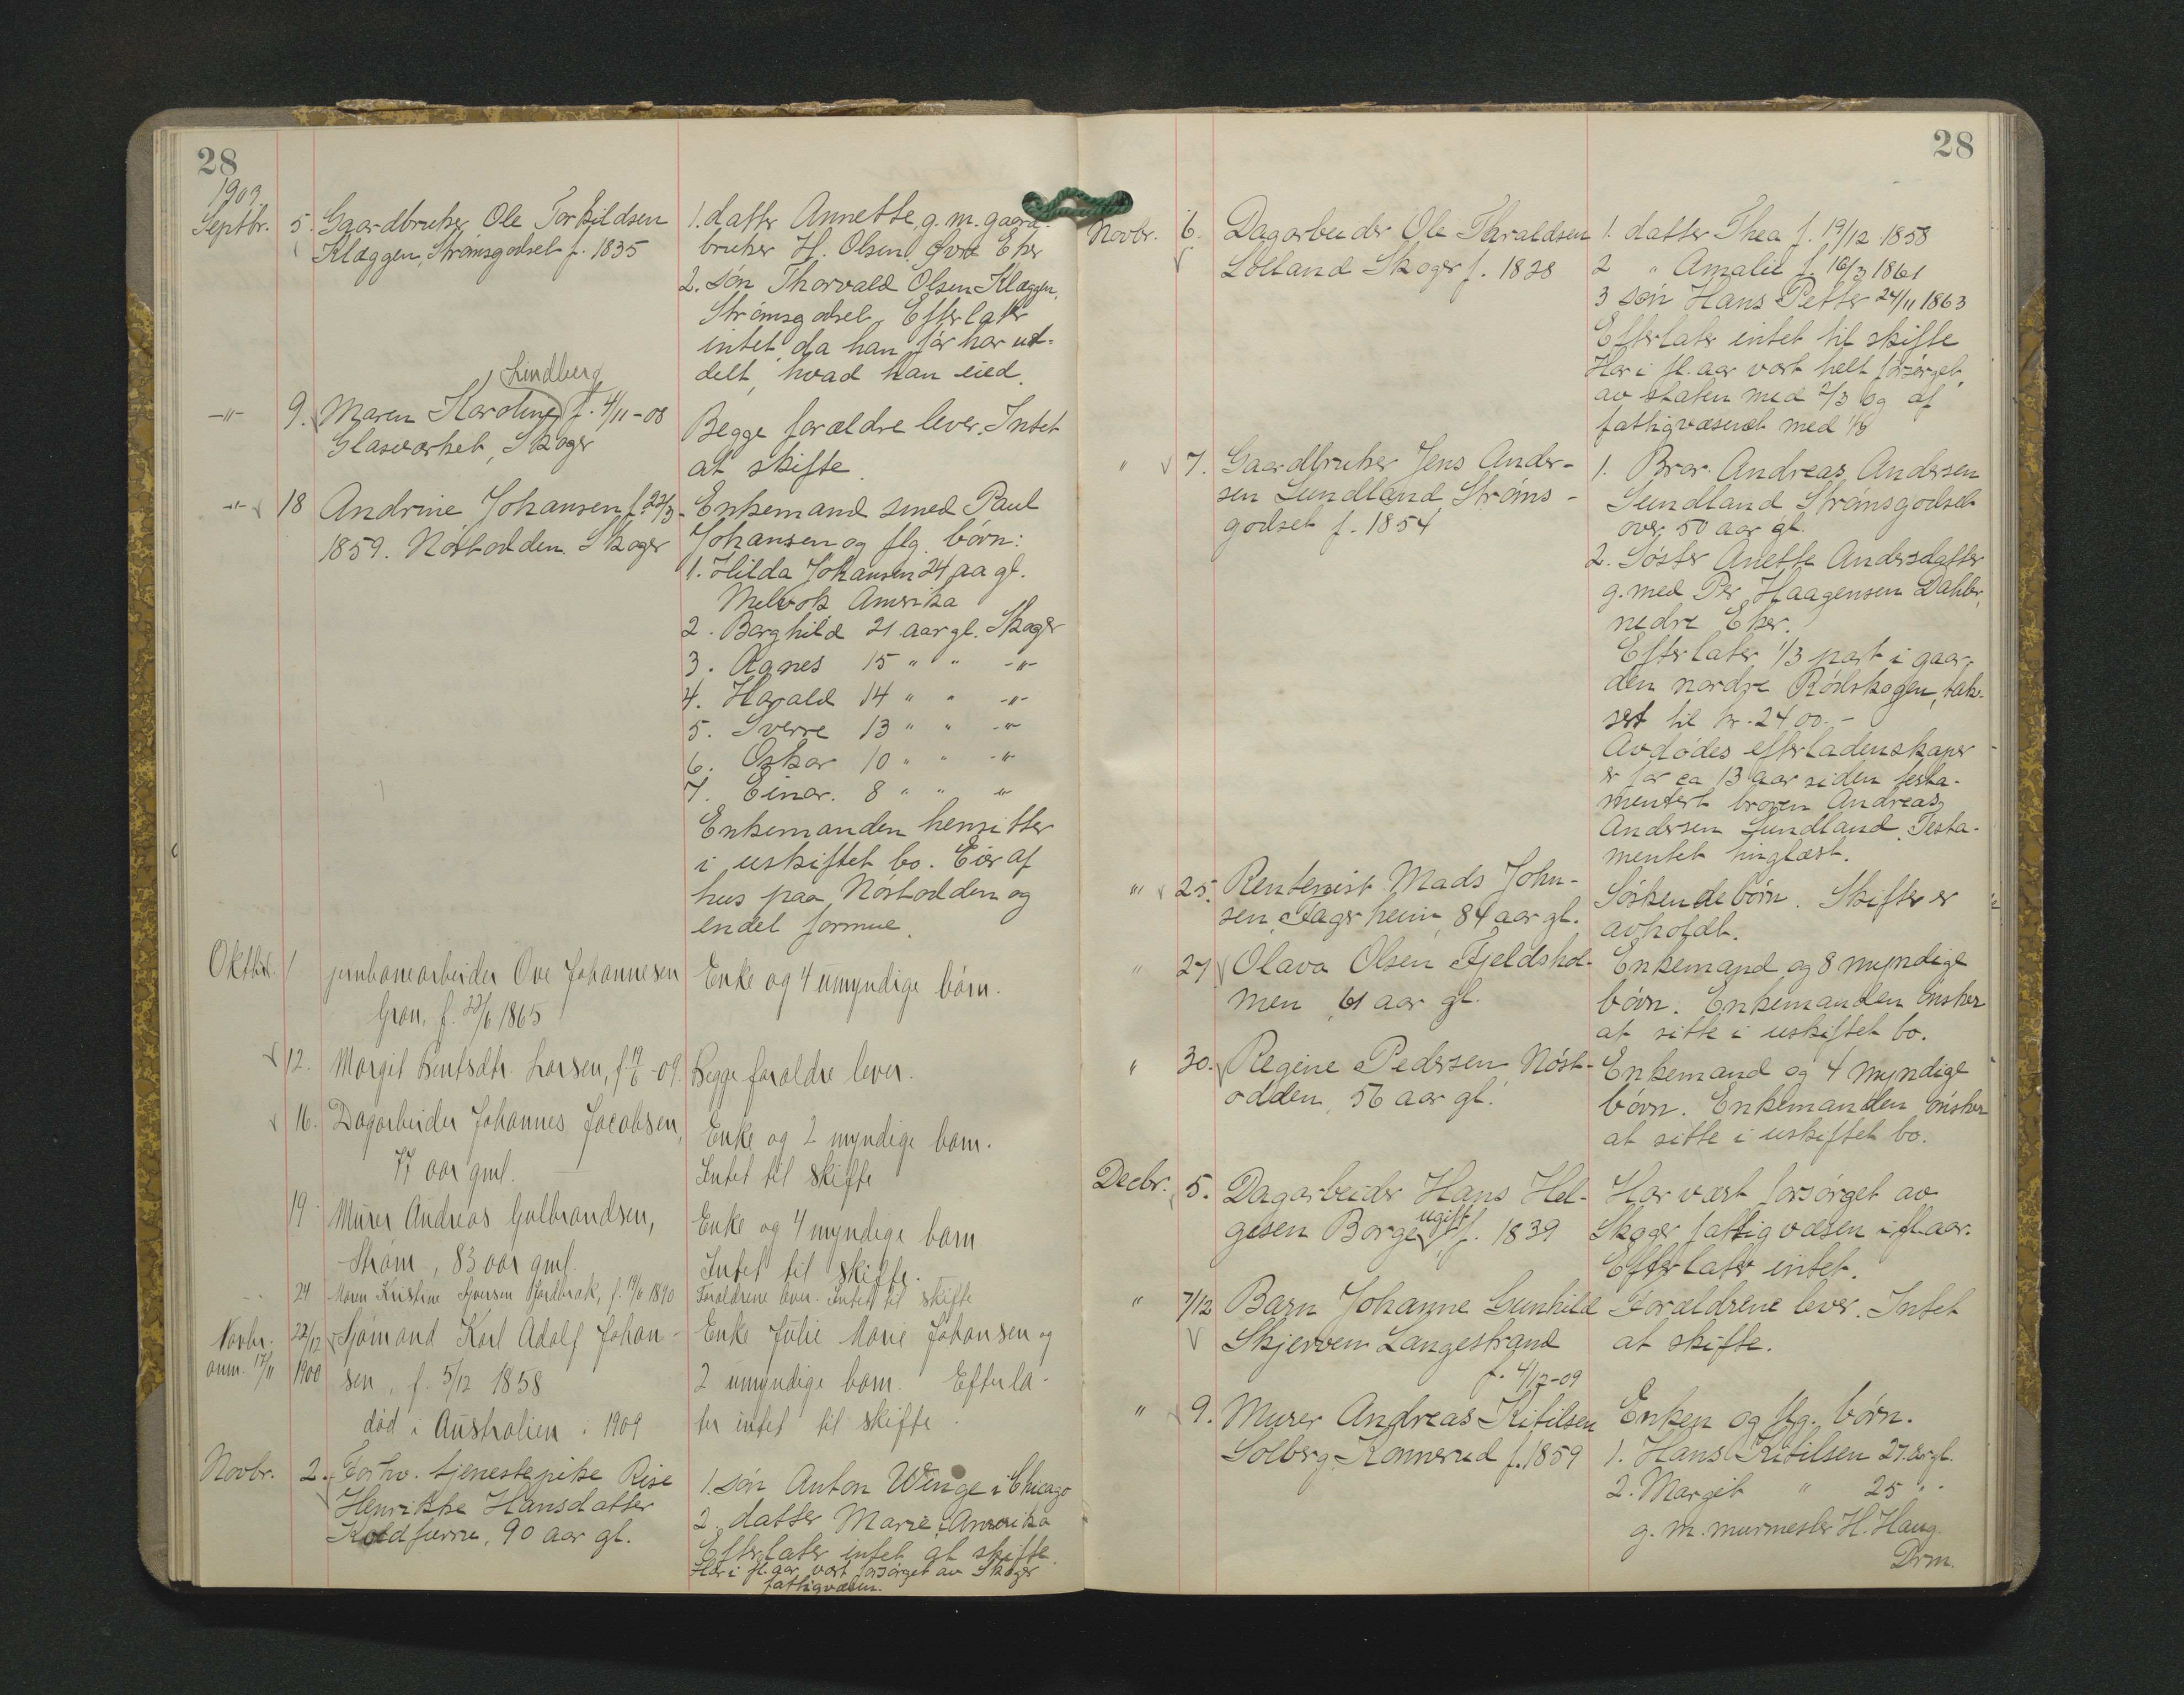 28
1909
Septbr. 5. Gaardbruker Ole Torkildsen
Klæggen, Strømsgodset f. 1835
1. datter Annette, g. m. gaard-
bruker H. Olsen Øvre Eker
2. søn Thorvald Olsen Klæggen,
Strømsgodset. Efterlater
intet da han før har ut-
delt, hvad han eied.
Lindberg
-"- 9. Maren Karoline f. 4/11-08
Glasværket, Skoger
Begge forældre lever. Intet
at skifte
-"- 18 Andrine Johansen f. 22/3
1859. Nøstodden Skoger
Enkemand smed Paul
Johansen og flg. børn:
1. Hilda Johansen 24 aa gl.
Amerika
2. Borghild 21 aar gl. Skoger
3. Agnes 15 " " -"-
4. Harald 14 " " -"-
5. Sverre 13 " " -"-
6. Oskar 10 " " -"-
7. Einar. 8 " " "
Enkemanden hensitter
i uskiftet bo. Eier af
hus paa Nøstodden og
endel formue.
Oktbr. 1 jernbanearbeider Ove Johannesen
Gran, f. 23/6 1865
Enke og 4 umyndige børn.
12. Margit Berntsdtr. Larsen, f. 19/6-09.
Begge forældre lever.
16. Dagarbeider Johannes Jacobsen,
77 aar gml.
Enke og 2 myndige barn.
Intet til skifte
19. Murer Andreas Gulbrandsen,
Strøm, 83 aar gml.
Enke og 4 myndige barn
Intet til skifte.
24 Maren Kristine Syversen f. 19/6 1890
Forældrene lever. Intet til skifte
Novbr. 22/12 Sjømand Karl Adolf Johan-
anm. 17/11 1900 sen, f. 5/12 1858
død i Australien i 1909
Enke Julie Marie Johansen og
2 umyndige barn. Efterla-
ter intet til skifte.
Novbr. 2. Forhv. tjenestepike Rise
Henrikke Hansdatter
Koldfurru, 90 aar gl.
1. søn Anton Winge i Chicago
2. datter Marie, Amerika
Efterlater intet at skifte.
Har i fl. aar vært forsørget av Skoger
fattigvæsen.
28
Novbr. 6. Dagarbeider Ole Thraldsen
Lolland Skoger f. 1828
1. datter Thea f. 19/12 1858
2 " Amalie f. 16/3 1861
3 søn Hans Petter 24/11 1863
Efterlater intet til skifte
Har i fl. aar vært helt forsørget
av staten med 2/3 og af
fattigvæsenet med 1/3
" 7. Gaardbruker Jens Ander-
sen Sundland, Strøms-
godset f. 1854
1. Bror Andreas Andersen
Sundland Strømsgodset
over 50 aar gl.
2. Søster Anette Andersdatter
g. med Per Haagensen Dahler,
nedre Eker.
Efterlater 1/3 part i gaar-
den nordre Rødskogen, tak-
sert til kr. 2400.-
Avdødes efterladenskaper
er for ca 13 aar siden testa-
mentert broren Andreas
Andersen Sundland. Testa-
mentet tinglæst.
" 25. Rentenist Mads John-
sen, Fagerheim, 84 aar gl.
Søskendebørn. Skifter er
avholdt.
" 27 Olava Olsen Fjeldshol-
men, 61 aar gl.
Enkemand og 8 myndige
børn. Enkemanden ønsker
at sitte i uskiftet bo.
" 30. Regine Pedersen Nøst-
odden, 56 aar gl.
Enkemand og 4 myndige
børn. Enkemanden ønsker
at sitte i uskiftet bo.
Decbr. 5. Dagarbeider Hans Hel-
ugift
gesen Borge, f. 1839
Har vært forsørget av
Skoger fattigvæsen i fl. aar.
Efterlater intet.
" 7/12 Barn Johanne Gunhild
Skjerven Langestrand
f. 4/12-09
Forældrene lever. Intet
at skifte.
" 9. Murer Andreas Kitilsen
Solberg-Konnerud f. 1859
Enken og flg. børn.
1. Hans Kitilsen 27 aar gl.
2. Margit " 25 " "
g. m. murmester H. Haug.
Drm.